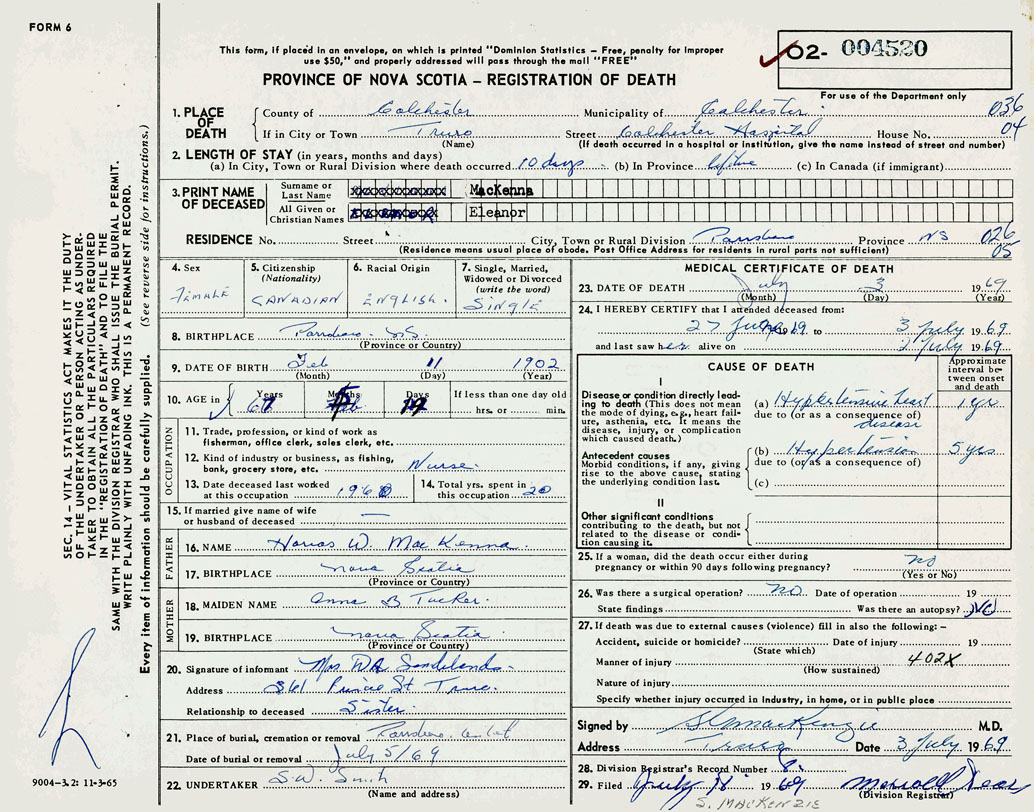 FORM 6
This form, if placed in an envelope, on which is printed "Dominion Statistics – Free, penalty for improper
use $50," and properly addressed will pass through the mail "FREE"
PROVINCE OF NOVA SCOTIA – REGISTRATION OF DEATH
02- 004520
For use of the Department only
1. PLACE OF DEATH
County of Colchester Municipality of Colchester 036
If in City or Town Truro Street Colchester Hospital House No. 04
(Name) (If death occurred in a hospital or institution, give the name instead of street and number)
2. LENGTH OF STAY (in years, months and days)
(a) In City, Town or Rural Division where death occurred 10 days (b) In Province lifetime (c) In Canada (if immigrant)
3. PRINT NAME OF DECEASED
Surname or Last Name MacKenna
All Given or Christian Names Eleanor
RESIDENCE No. Street City, Town or Rural Division Parrsboro Province NS 026
(Residence means usual place of abode. Post Office Address for residents in rural parts not sufficient) 05
4. Sex
FEMALE
5. Citizenship
(Nationality)
CANADIAN
6. Racial Origin
ENGLISH.
7. Single, Married,
Widowed or Divorced
(write the word)
SINGLE
8. BIRTHPLACE Parrsboro N.S.
(Province or Country)
9. DATE OF BIRTH Feb 11 1902
(Month) (Day) (Year)
10. AGE in Years Months Days If less than one day old
67 hrs. or min.
OCCUPATION
11. Trade, profession, or kind of work as
fisherman, office clerk, sales clerk, etc.
12. Kind of industry or business, as fishing,
bank, grocery store, etc. Nurse.
13. Date deceased last worked
at this occupation 1960
14. Total yrs. spent in
this occupation 20
15. If married give name of wife
or husband of deceased —
FATHER
16. NAME W. MacKenna
17. BIRTHPLACE Nova Scotia
(Province or Country)
MOTHER
18. MAIDEN NAME Anna B Tucker.
19. BIRTHPLACE Nova Scotia
(Province or Country)
20. Signature of informant Mrs Sandilands.
Address 361 Prince St Truro.
Relationship to deceased Sister.
21. Place of burial, cremation or removal Parrsboro
Date of burial or removal July 5/69
22. UNDERTAKER S.W. Smith
(Name and address)
MEDICAL CERTIFICATE OF DEATH
23. DATE OF DEATH July 3 1969
(Month) (Day) (Year)
24. I HEREBY CERTIFY that I attended deceased from:
27 June 1969 to 3 July 1969
and last saw her alive on 2 July 1969
CAUSE OF DEATH
Approximate
interval be-
tween onset
and death
I
Disease or condition directly lead-
ing to death (This does not
mean the mode of dying, e.g., heart fail-
ure, asthenia, etc. It means the
disease, injury, or complication
which caused death.)
(a) Hypertensive heart 1 yr
due to (or as a consequence of)
disease
Antecedent causes
Morbid conditions, if any, giving
rise to the above cause, stating
the underlying condition last.
(b) Hypertension 5 yrs
due to (or as a consequence of)
(c)
II
Other significant conditions
contributing to the death, but not
related to the disease or condi-
tion causing it.
25. If a woman, did the death occur either during
pregnancy or within 90 days following pregnancy? no
(Yes or No)
26. Was there a surgical operation? no. Date of operation 19
State findings Was there an autopsy? NO
27. If death was due to external causes (violence) fill in also the following: –
Accident, suicide or homicide? Date of injury 19
(State which)
Manner of injury 402X
(How sustained)
Nature of injury
Specify whether injury occurred in Industry, in home, or in public place
Signed by MacKenzie M.D.
Address Truro Date 3 July 1969
28. Division Registrar's Record Number 8.
29. Filed July 18 1969
(Division Registrar)
S. MACKENZIE
SEC. 14 – VITAL STATISTICS ACT MAKES IT THE DUTY
OF THE UNDERTAKER OR PERSON ACTING AS UNDER-
TAKER TO OBTAIN ALL THE PARTICULARS REQUIRED
IN THE "REGISTRATION OF DEATH" AND TO FILE THE
SAME WITH THE DIVISION REGISTRAR WHO SHALL ISSUE THE BURIAL PERMIT.
WRITE PLAINLY WITH UNFADING INK. THIS IS A PERMANENT RECORD.
Every item of information should be carefully supplied. (See reverse side for instructions.)
9004-3.2: 11-3-65